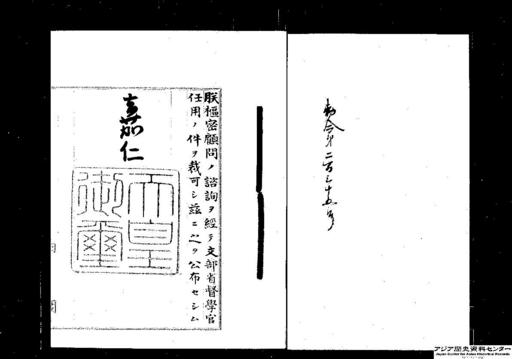 勅令第二百三十五号
朕樞密顧問ノ諮詢ヲ經テ文部省督學官
任用ノ件ヲ裁可シ茲ニ之ヲ公布セシム
嘉仁
天皇
御璽
アジア歴史資料センター
Japan Center for Asian Historical Records